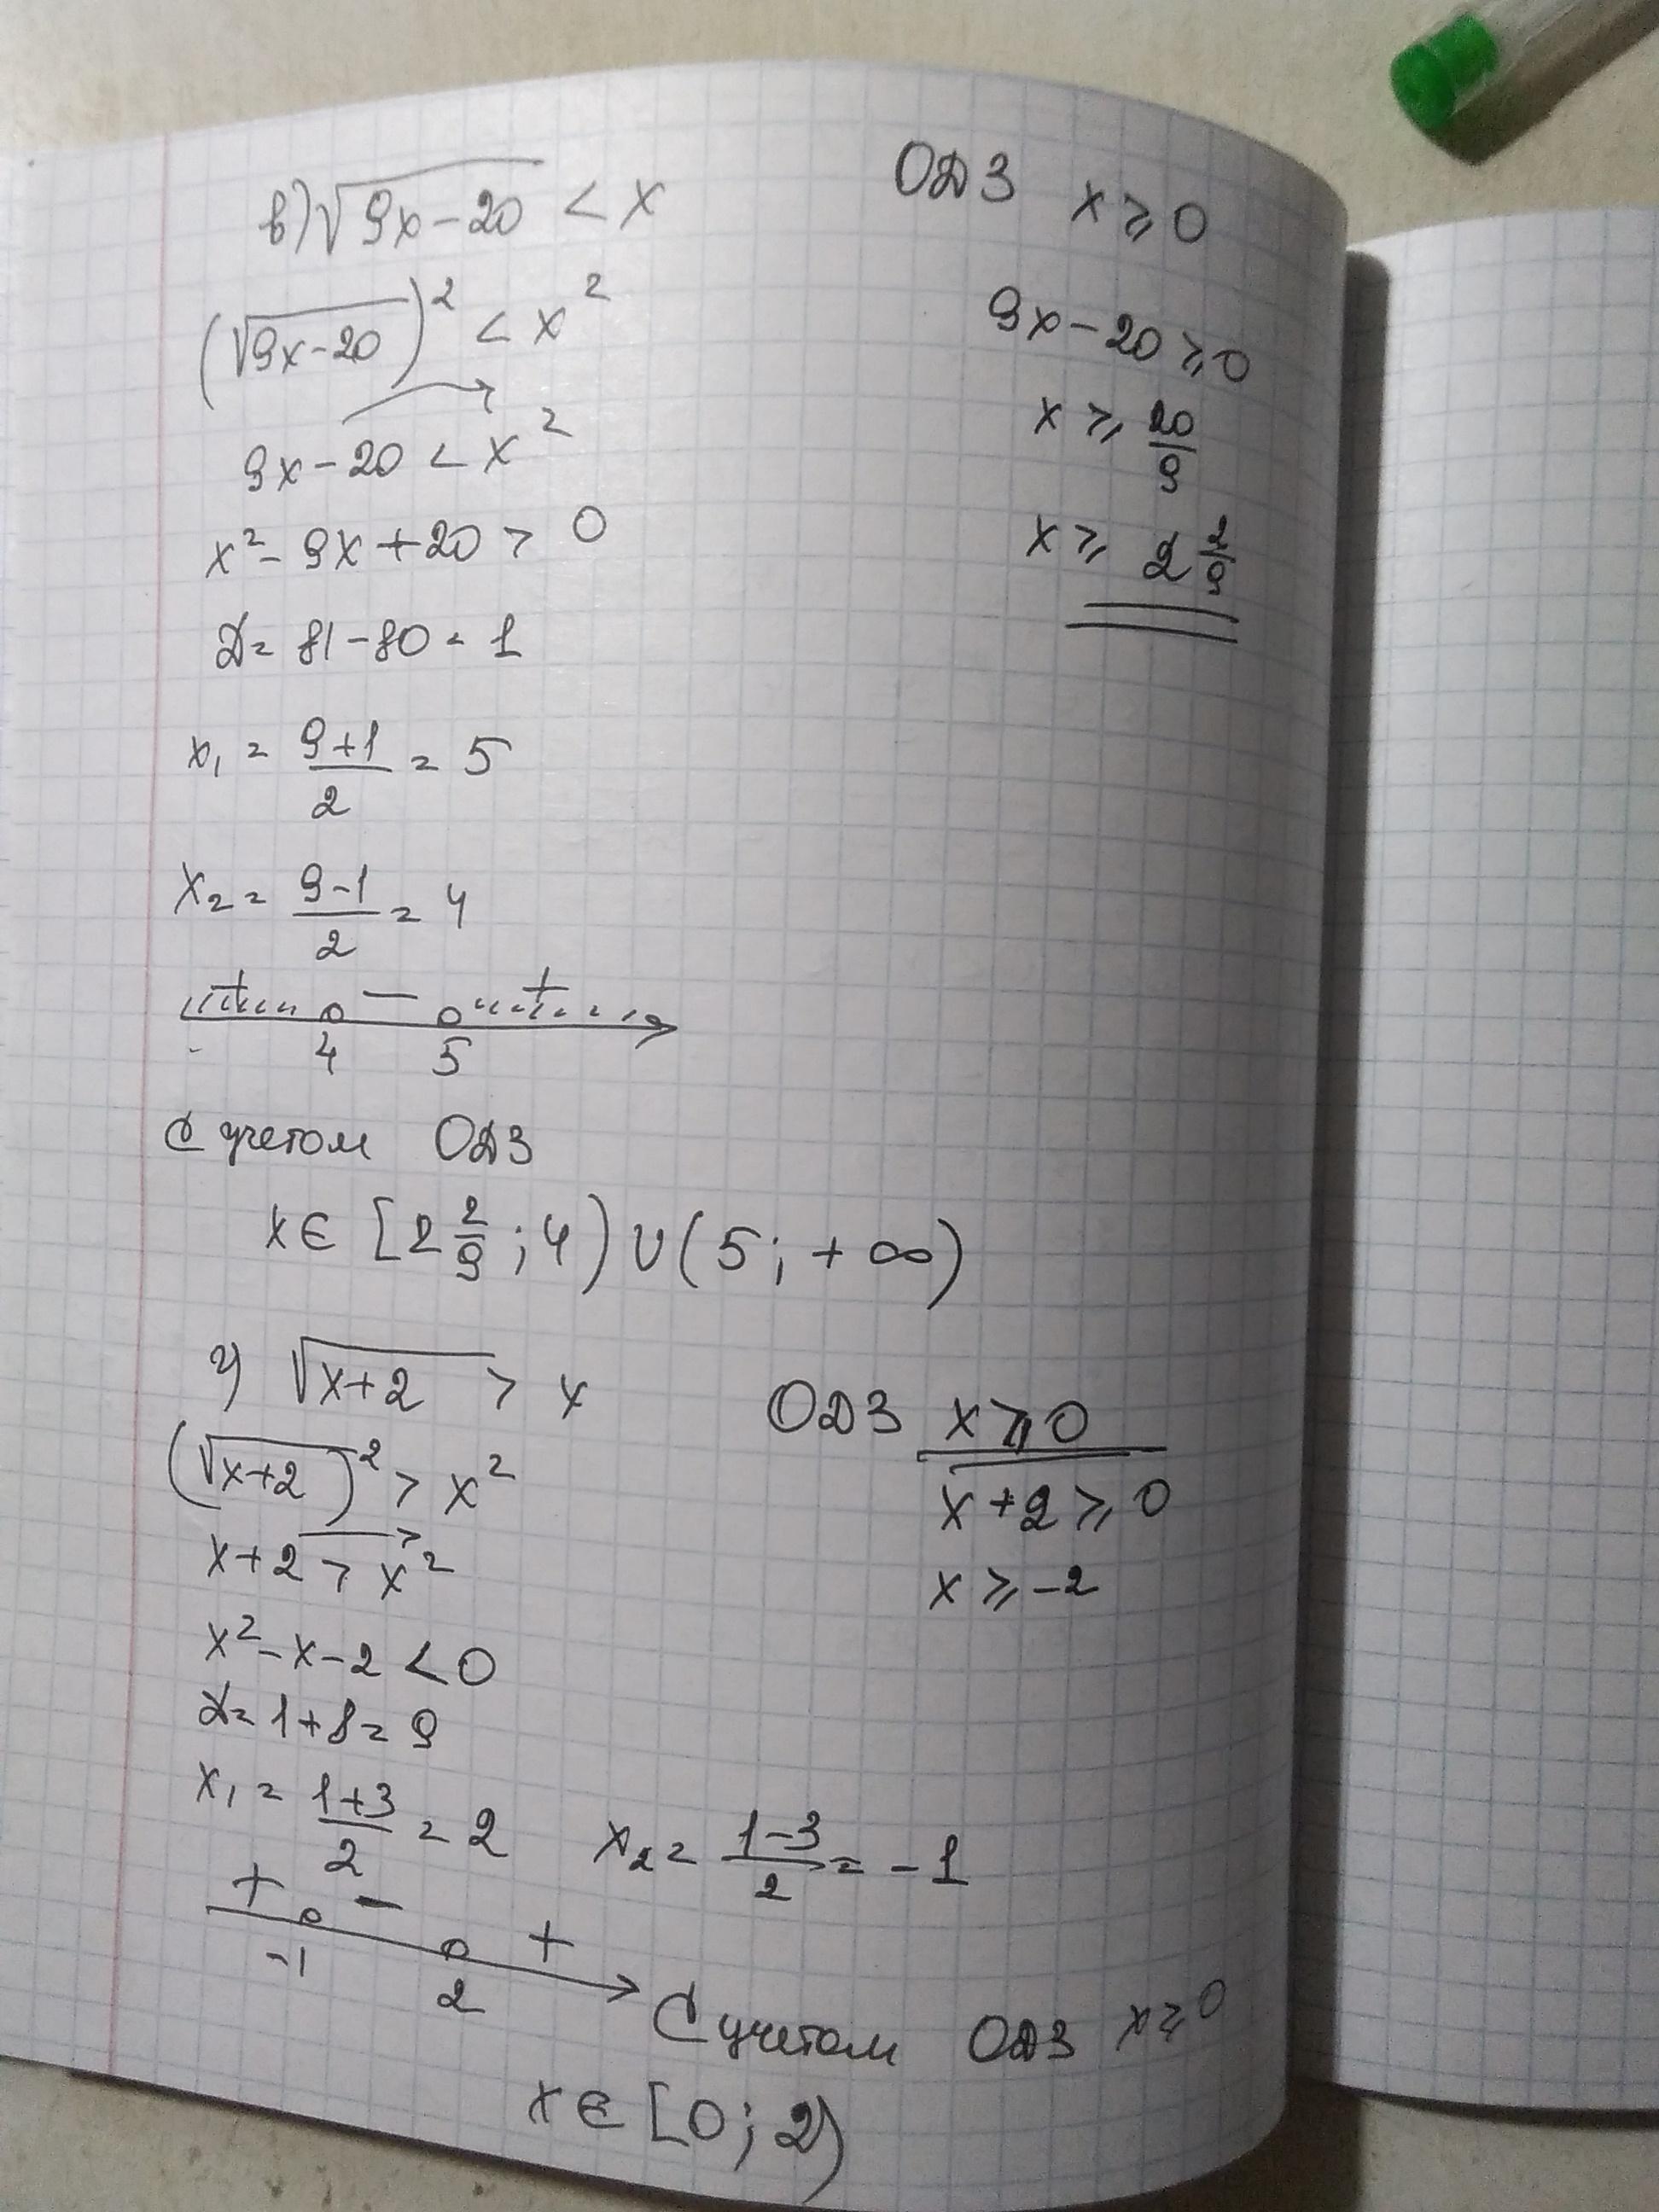 в) √(9x-20) < x
ОДЗ x ⩾ 0
(√(9x-20))² < x²
9x-20 ⩾ 0
9x-20 < x²
x ⩾ 20/9
x²-9x+20 > 0
x ⩾ 2 2/9
D = 81-80 = 1
x₁ = (9+1)/2 = 5
x₂ = (9-1)/2 = 4
+ - +
4 5
С учетом ОДЗ
x ∈ [2 2/9; 4) ∪ (5; +∞)
г) √(x+2) > x
ОДЗ x ⩾ 0
(√(x+2))² > x²
x+2 ⩾ 0
x+2 > x²
x ⩾ -2
x²-x-2 < 0
D = 1+8 = 9
x₁ = (1+3)/2 = 2 x₂ = (1-3)/2 = -1
+ - +
-1 2
С учетом ОДЗ x ⩾ 0
x ∈ [0; 2)